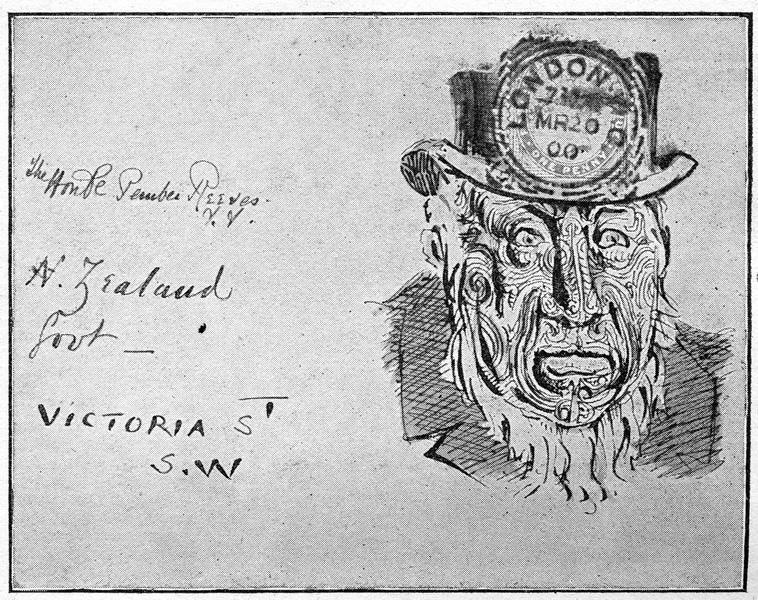 The Honble Pember Reeves.
N. Zealand
Govt —
VICTORIA ST
S.W
LONDON
MR 20
00
ONE PENNY